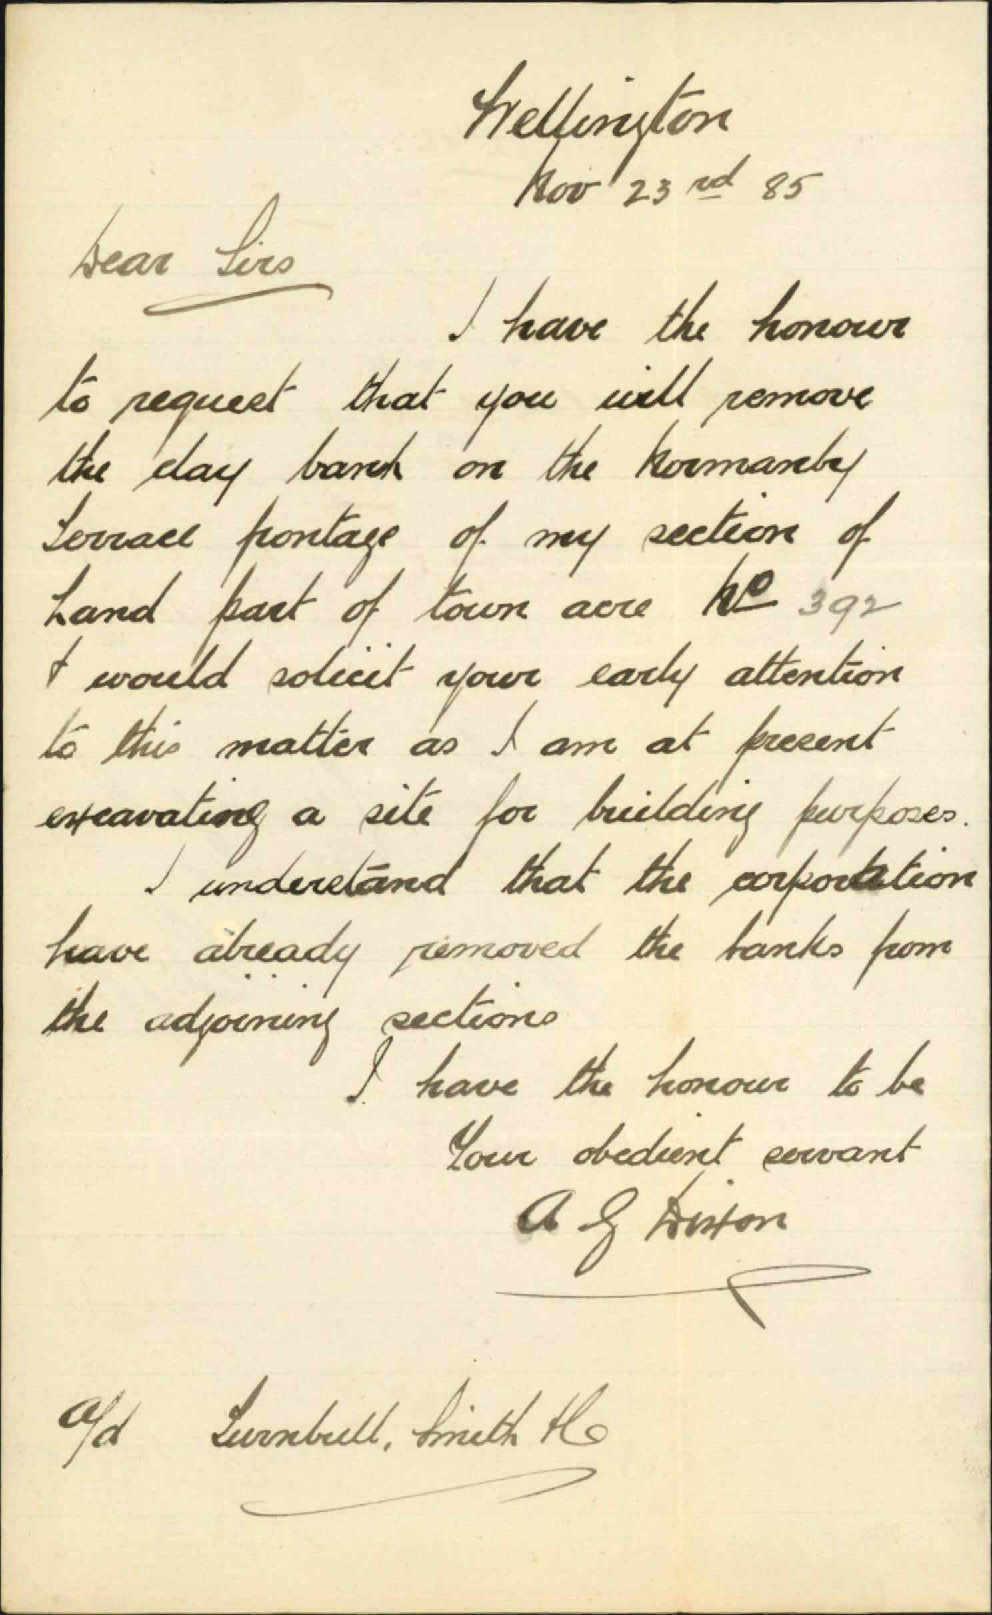 Wellington
Nov 23rd 85
Dear Sirs
I have the honour
to request that you will remove
the clay bank on the Normanby
Terrace frontage of my section of
Land part of town acre No 392
I would solicit your early attention
to this matter as I am at present
excavating a site for building purposes.
I understand that the corporation
have already removed the banks from
the adjoining sections
I have the honour to be
Your obedient servant
A G Dixon
a/d Turnbull, Smith & Co